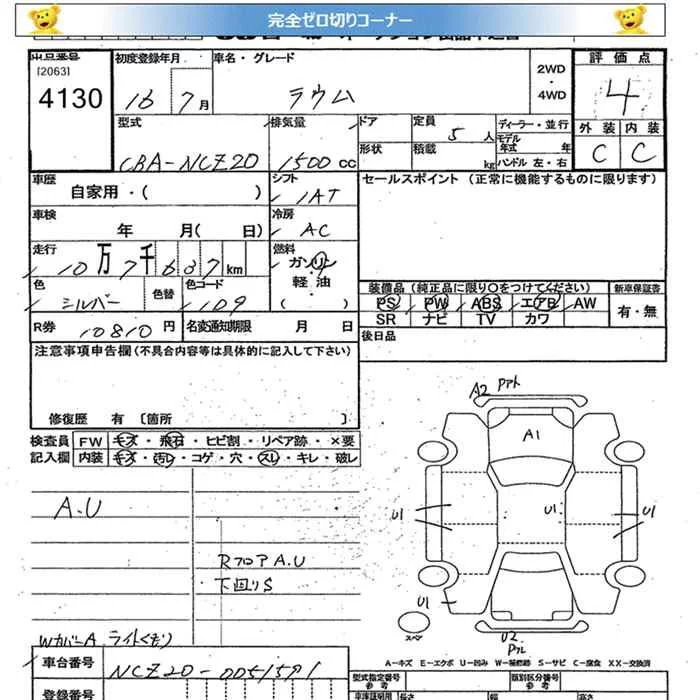 完全ゼロ切りコーナー
出品番号 初度登録年月 車名・グレード 2WD・4WD 評価点
[2063]
4130 16 7月 ラウム 4
型式 排気量 ドア 定員 5人 ディーラー・並行 外装 内装
CBA-NCZ20 1500cc 形状 積載 kg モデル年式 年 ハンドル 左・右 C C
車歴 自家用・( ) シフト IAT セールスポイント (正常に機能するものに限ります)
車検 年 月( 日) 冷房 AC
走行 10万7千637km 燃料 ガソリン・軽油・( )
色 シルバー 色替 色コード 109
装備品 (純正品に限り○をつけてください) 新車保証書
PS PW ABS エアB AW 有・無
SR ナビ TV カワ
R券 10810円 名変通知期限 月 日 後日品
注意事項申告欄 (不具合内容等は具体的に記入して下さい)
修復歴 有 [箇所 ]
検査員 FW キズ・飛石・ヒビ割・リペア跡・×要
記入欄 内装 キズ・汚レ・コゲ・穴・スレ・キレ・破レ
A2 アト
A1
A.U
U1 U1 U1
RフロアA.U
下回りS
U1
スペア
WカバーA ライトくもり
U2
A-キズ E-エクボ U-凹み W-補修跡 S-サビ C-腐食 XX-交換済
車台番号 NCZ20-0051591
型式指定番号 参考 類別区分番号 参考
登録番号 車庫証明用 長さ 幅 高さ